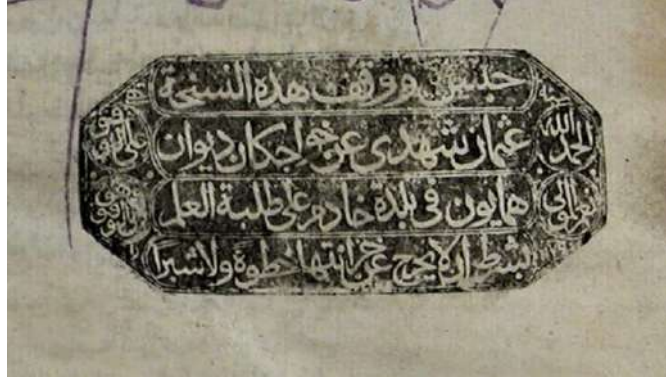 حبس ووقف هذه النسخة
عثمان شهدى عن خواجكان ديوان
همايون فى بلدة خادم على طلبة العلم
بشرط ان لا يخرج عن خزانتها خطوة ولا شبرا
الحمد لله